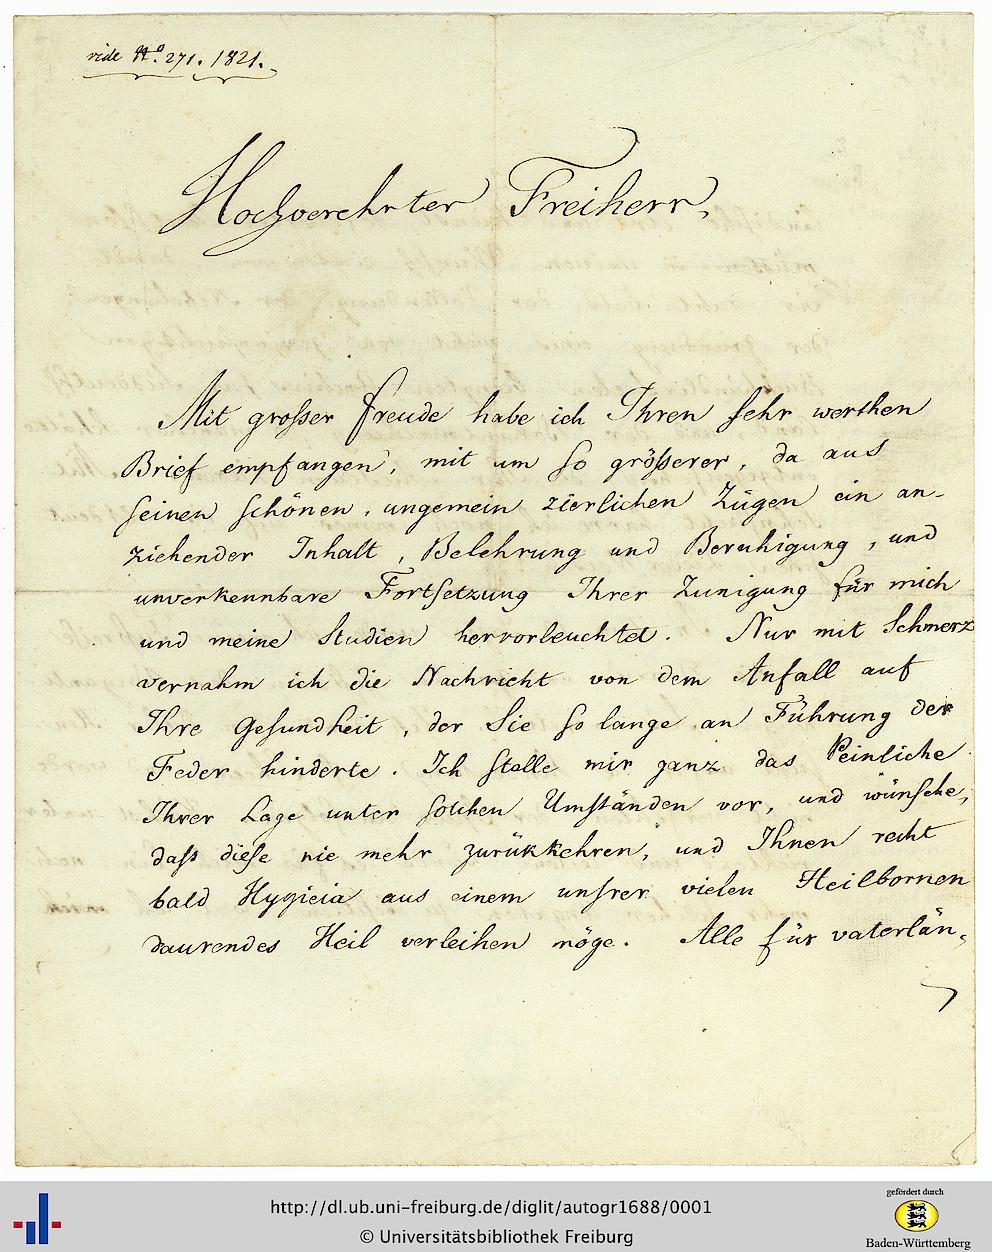 vide No. 271. 1821.
Hochverehrter Freiherr,
Mit grosser Freude habe ich Ihren sehr werthen
Brief empfangen, mit um so grösserer, da aus
seinen schönen, ungemein zierlichen Zügen ein an-
ziehender Inhalt, Belehrung und Beruhigung, und
unverkennbare Fortsetzung Ihrer Zunigung für mich
und meine Studien hervorleuchtet. Nur mit Schmerz
vernahm ich die Nachricht von dem Anfall auf
Ihre Gesundheit, der Sie so lange an Führung der
Feder hinderte. Ich stelle mir ganz das Peinliche
Ihrer Lage unter solchen Umständen vor, und wünsche,
dass diese nie mehr zurükkehren, und Ihnen recht
bald Hygieia aus einem unsrer vielen Heilbornen
daurendes Heil verleihen möge. Alle für vaterlän-
http://dl.ub.uni-freiburg.de/diglit/autogr1688/0001
© Universitätsbibliothek Freiburg
gefördert durch
Baden-Württemberg